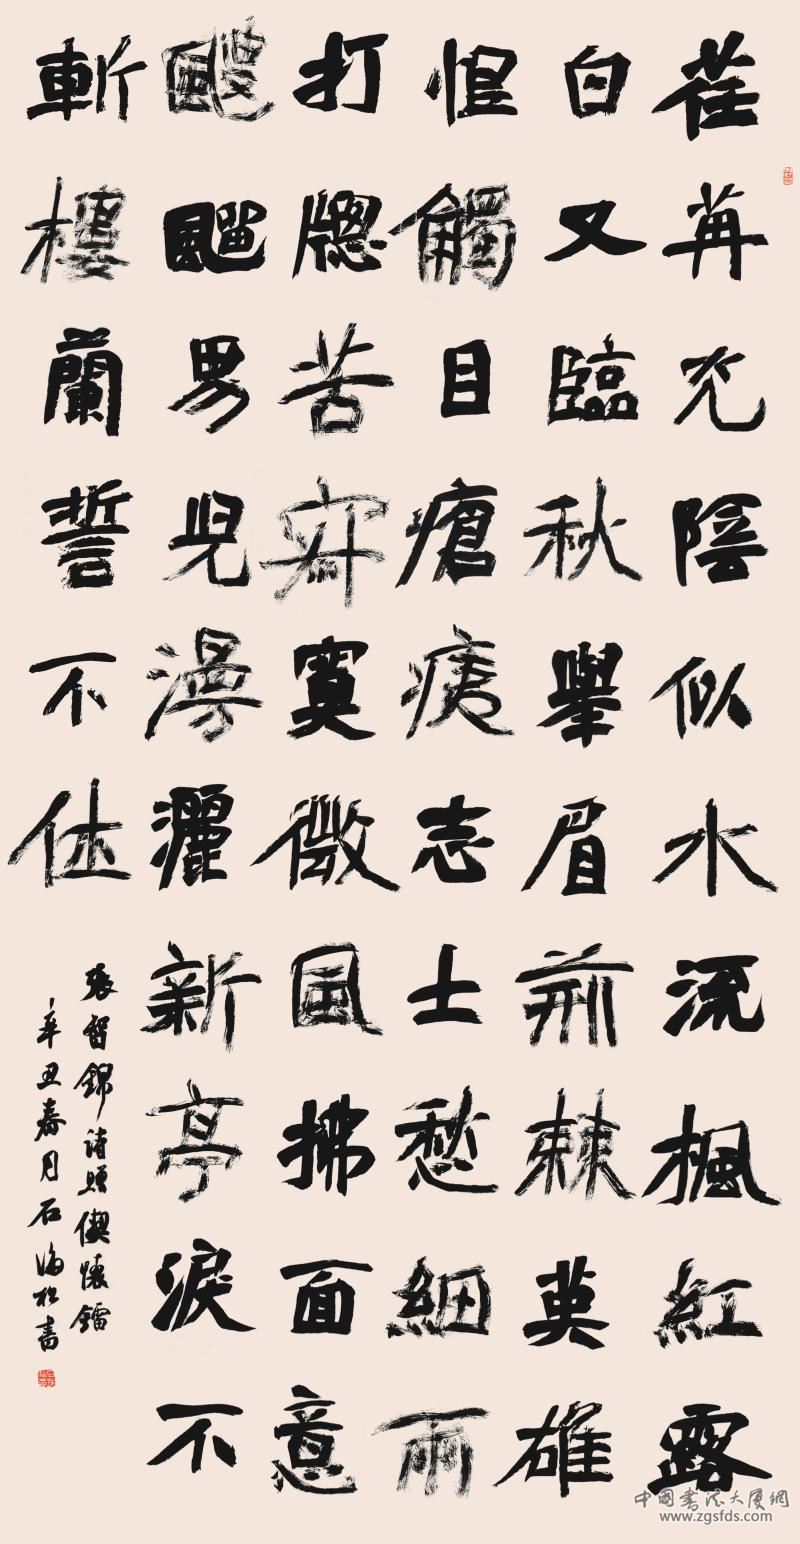 荏苒光陰似水流楓紅露
白又臨秋舉眉荊棘英雄
觸目瘡痍志士愁細雨
打牕苦寂寞微風拂面意
颼飀男兒漫灑新亭淚不
斬樓蘭誓不休
張智錦詩 懷鐳
辛丑春月石海松書
中國書法大廈網
www.zgsfds.com